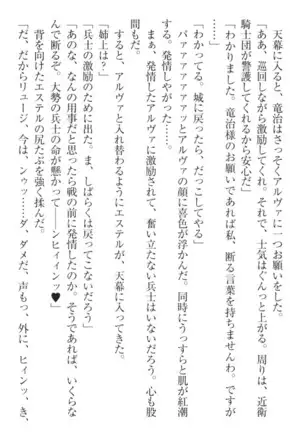 天幕に入ると、竜治はさっそくアルヴァに一つお願いをした。
「ああ、巡回しながら激励してくれ。それで、士気はぐんっと上がる。周りは、近衛
騎士団が警護してくれるから安心だ」
「わかりました。竜治様のお願いであれば私、断る言葉を持ちませんわ。ですが
「わかってる。城に戻ったら、だっこしてやる」
パァァァァァァァッとアルヴァの顔に喜色が浮かんだ。同時にうっすらと肌が紅潮
する。発情しやがった……。
まぁ、発情したアルヴァに激励されて、奮い立たない兵士はいないだろう。心も股
間もだ。
すると、アルヴァと入れ替わるようにエステルが、天幕に入ってきた。
「姉上は？」
「兵士の激励のために出た。ま、しばらくは戻ってこないだろう」
「あのな、なんの用事だと思ったら戦の前に発情したのか。そうであれば、いくらな
んで断るぞ。大勢の兵士の命が懸かって――ンヒィィンッ♥」
背を向けたエステルの尻たぶを強く揉んだ。
「だ、だからリュージ、今は、ンゥッ……ダ、ダメだ、声もっ、外に、ヒィンッ、き、